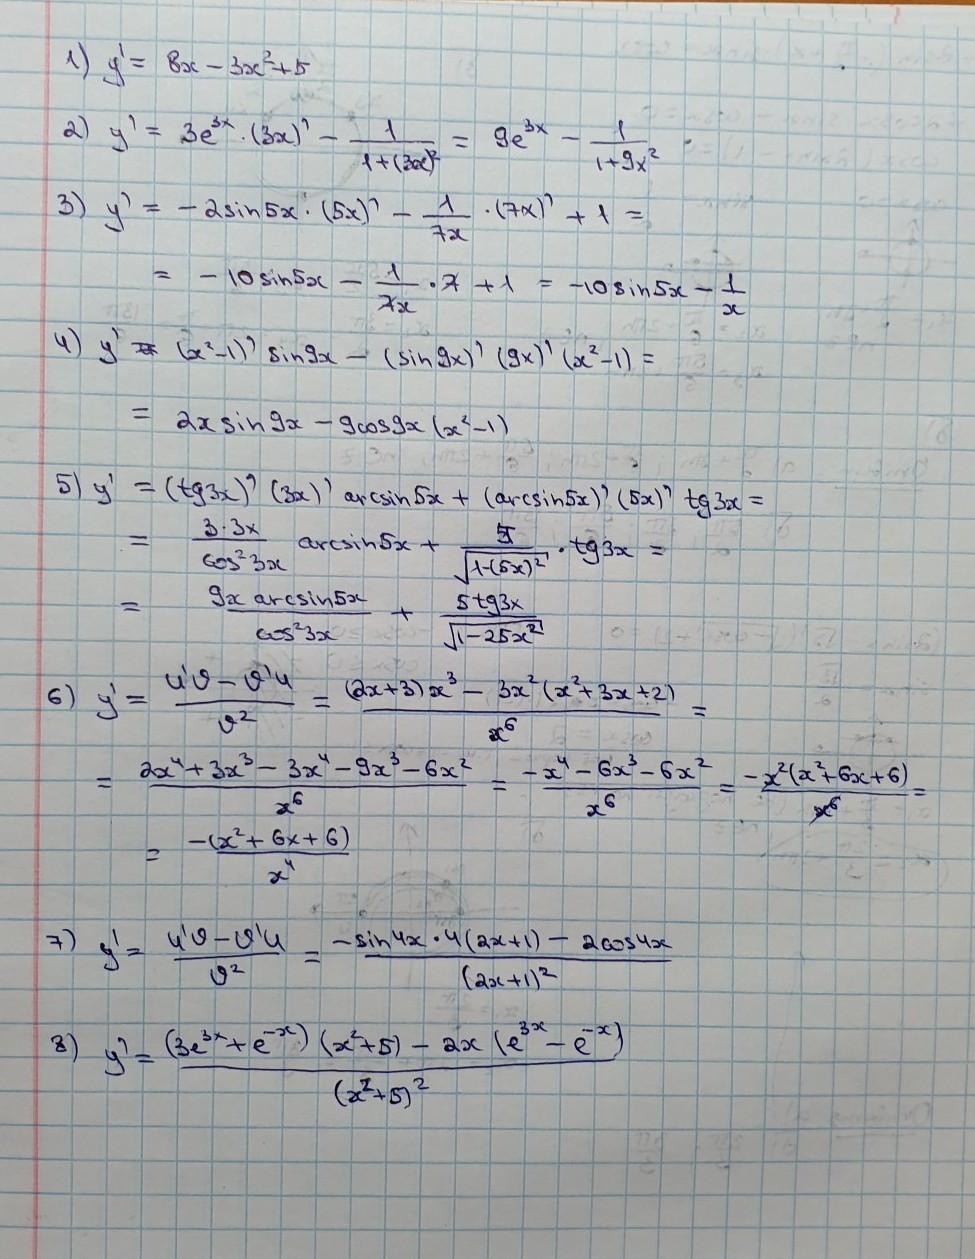 1) y' = 8x - 3x² + 5
2) y' = 3e^{3x} · (3x)' - \frac{1}{1+(3x)²} = 9e^{3x} - \frac{1}{1+9x²}
3) y' = -2sin5x · (5x)' - \frac{1}{7x} · (7x)' + 1 =
= -10sin5x - \frac{1}{7x} · 7 + 1 = -10sin5x - \frac{1}{x}
4) y' = (x²-1)' sin9x - (sin9x)' (9x)' (x²-1) =
= 2x sin9x - 9cos9x (x²-1)
5) y' = (tg3x)' (3x)' arcsin5x + (arcsin5x)' (5x)' tg3x =
= \frac{3·3x}{cos²3x} arcsin5x + \frac{5}{\sqrt{1-(5x)²}} · tg3x =
= \frac{9x arcsin5x}{cos²3x} + \frac{5tg3x}{\sqrt{1-25x²}}
6) y' = \frac{u'v - v'u}{v²} = \frac{(2x+3)x³ - 3x²(x²+3x+2)}{x⁶} =
= \frac{2x⁴+3x³-3x⁴-9x³-6x²}{x⁶} = \frac{-x⁴-6x³-6x²}{x⁶} = \frac{-x²(x²+6x+6)}{x⁶} =
= \frac{-(x²+6x+6)}{x⁴}
7) y' = \frac{u'v - v'u}{v²} = \frac{-sin4x·4(2x+1) - 2cos4x}{(2x+1)²}
8) y' = \frac{(3e^{3x}+e^{-x})(x²+5) - 2x(e^{3x}-e^{-x})}{(x²+5)²}